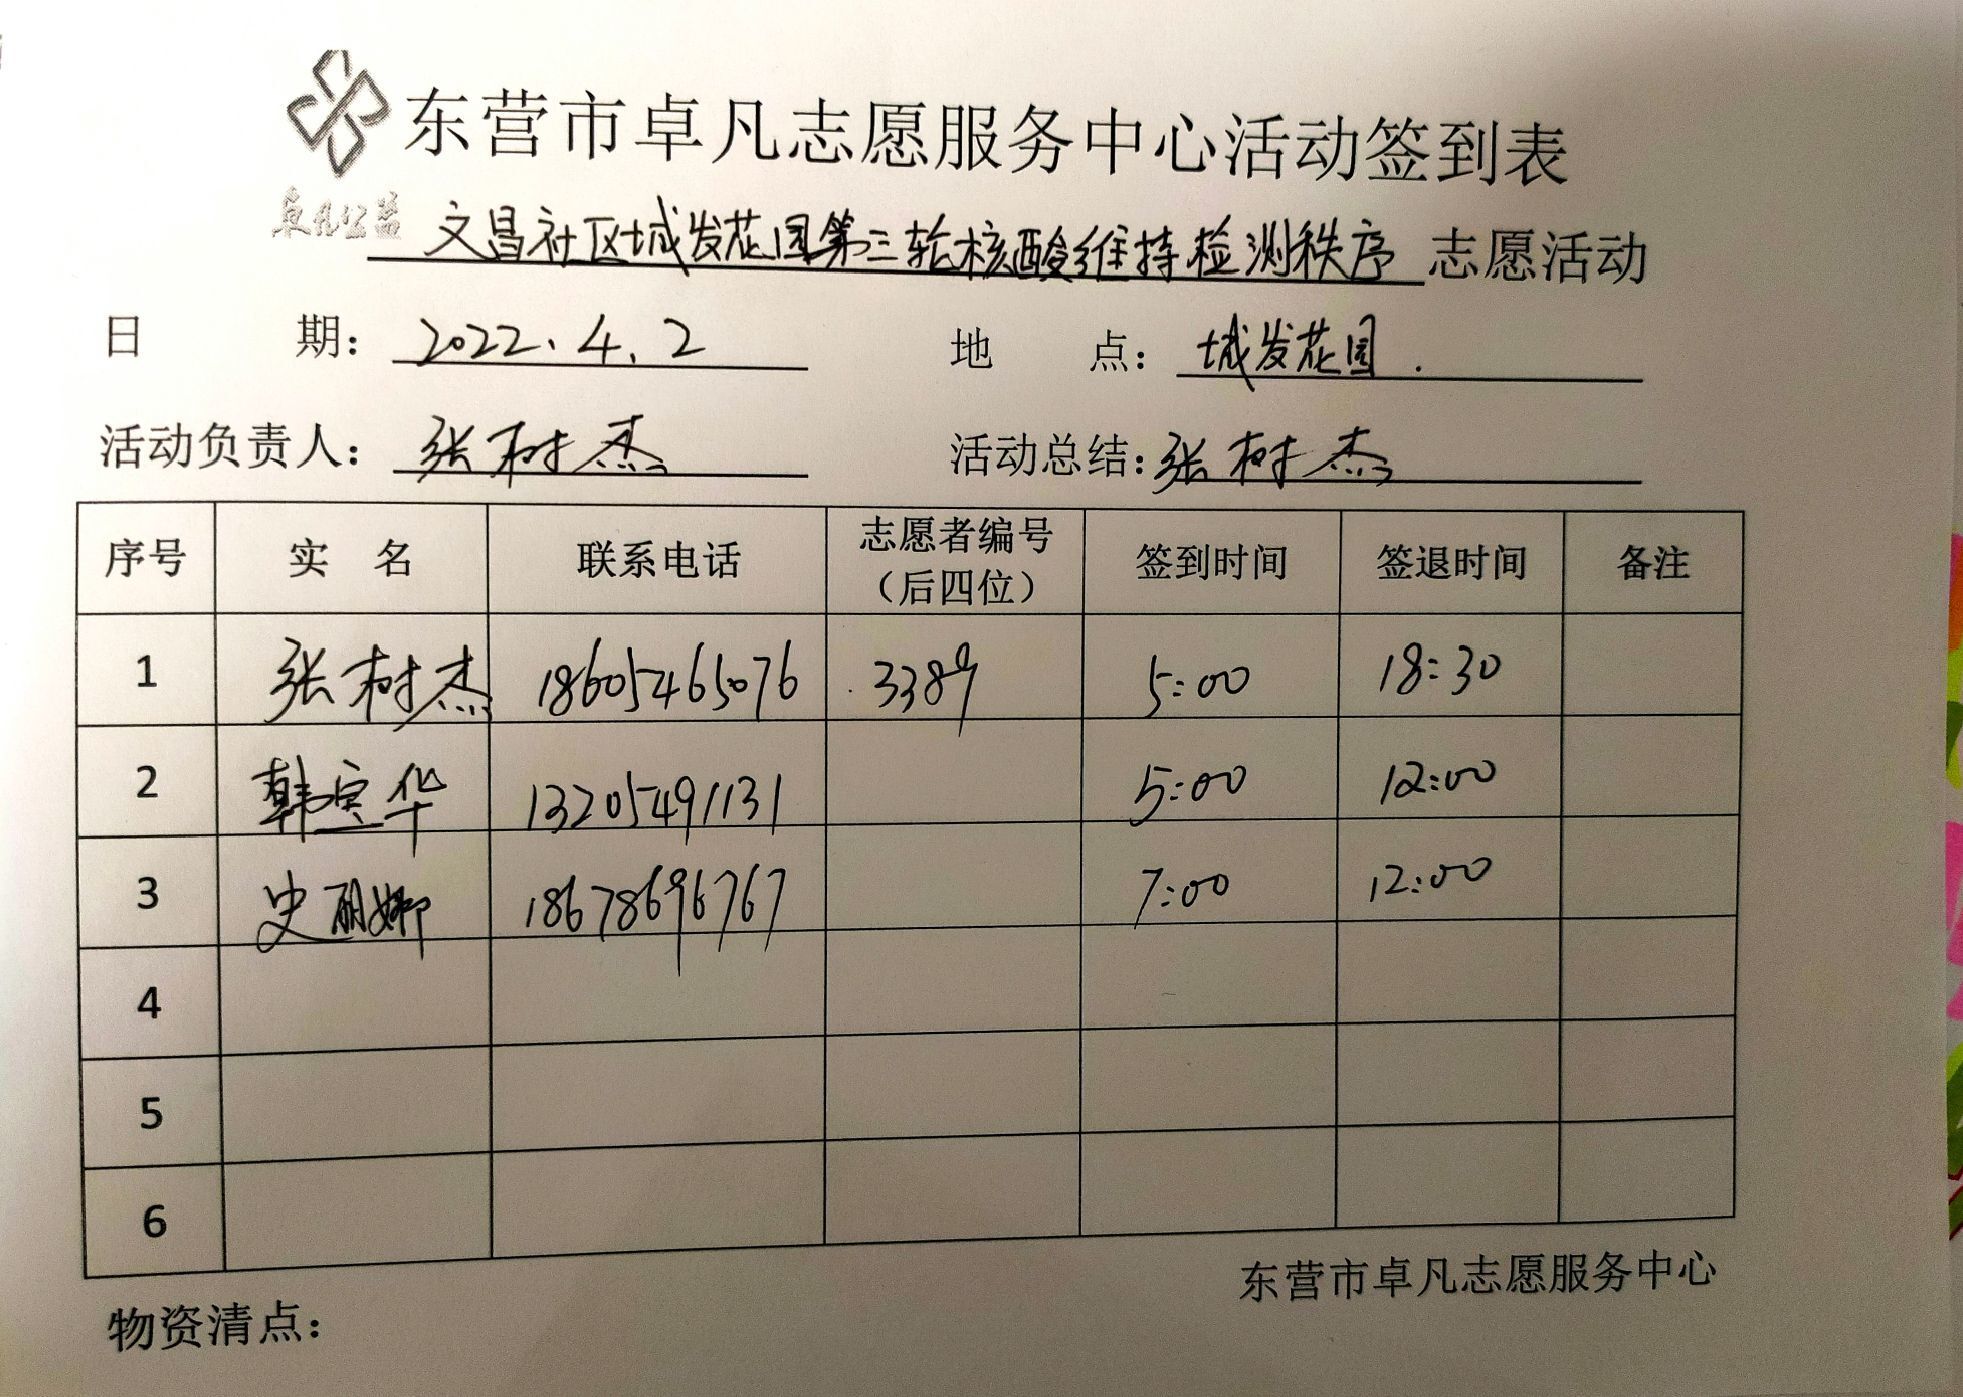 东营市卓凡志愿服务中心活动签到表
卓凡公益
文昌社区城发花园第三轮核酸维持检测秩序 志愿活动
日 期：2022.4.2 地 点：城发花园.
活动负责人：张树杰 活动总结：张树杰
序号 实 名 联系电话 志愿者编号（后四位） 签到时间 签退时间 备注
1 张树杰 18605465076 3389 5:00 18:30
2 韩寅华 13205491131 5:00 12:00
3 史丽娜 18678696767 7:00 12:00
4
5
6
东营市卓凡志愿服务中心
物资清点：